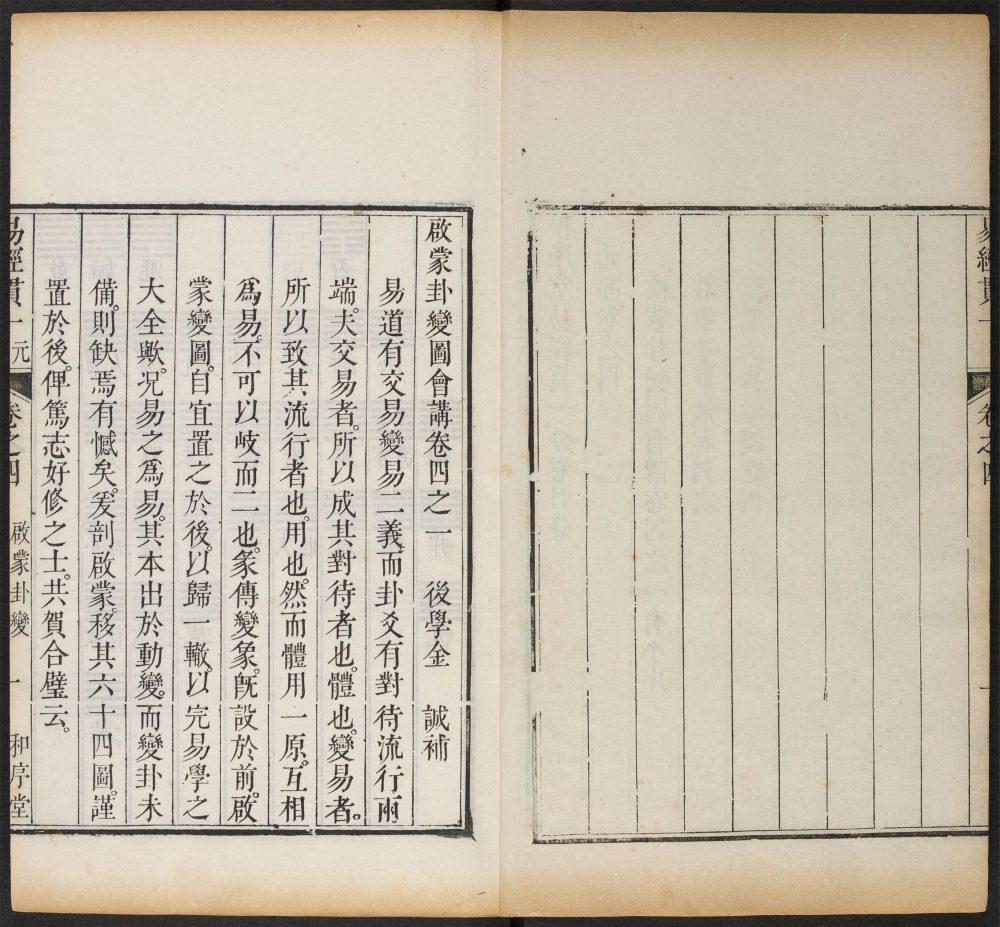 易經貫一
卷之四
一
啟蒙卦變圖會講卷四之一　後學金　誠補
易道有交易變易二義。而卦爻有對待流行兩
端。夫交易者。所以成其對待者也。體也。變易者。
所以致其流行者也。用也。然而體用一原。互相
爲易。不可以岐而二也。彖傳變象。旣設於前。啟
蒙變圖。自宜置之於後。以歸一轍。以完易學之
大全歟。况易之爲易。其本出於動變。而變卦未
備。則缺焉有憾矣。爰剖啟蒙。移其六十四圖。謹
置於後。俾篤志好修之士。共賀合璧云。
易經貫一　元　卷之四　啟蒙卦變　一　和序堂